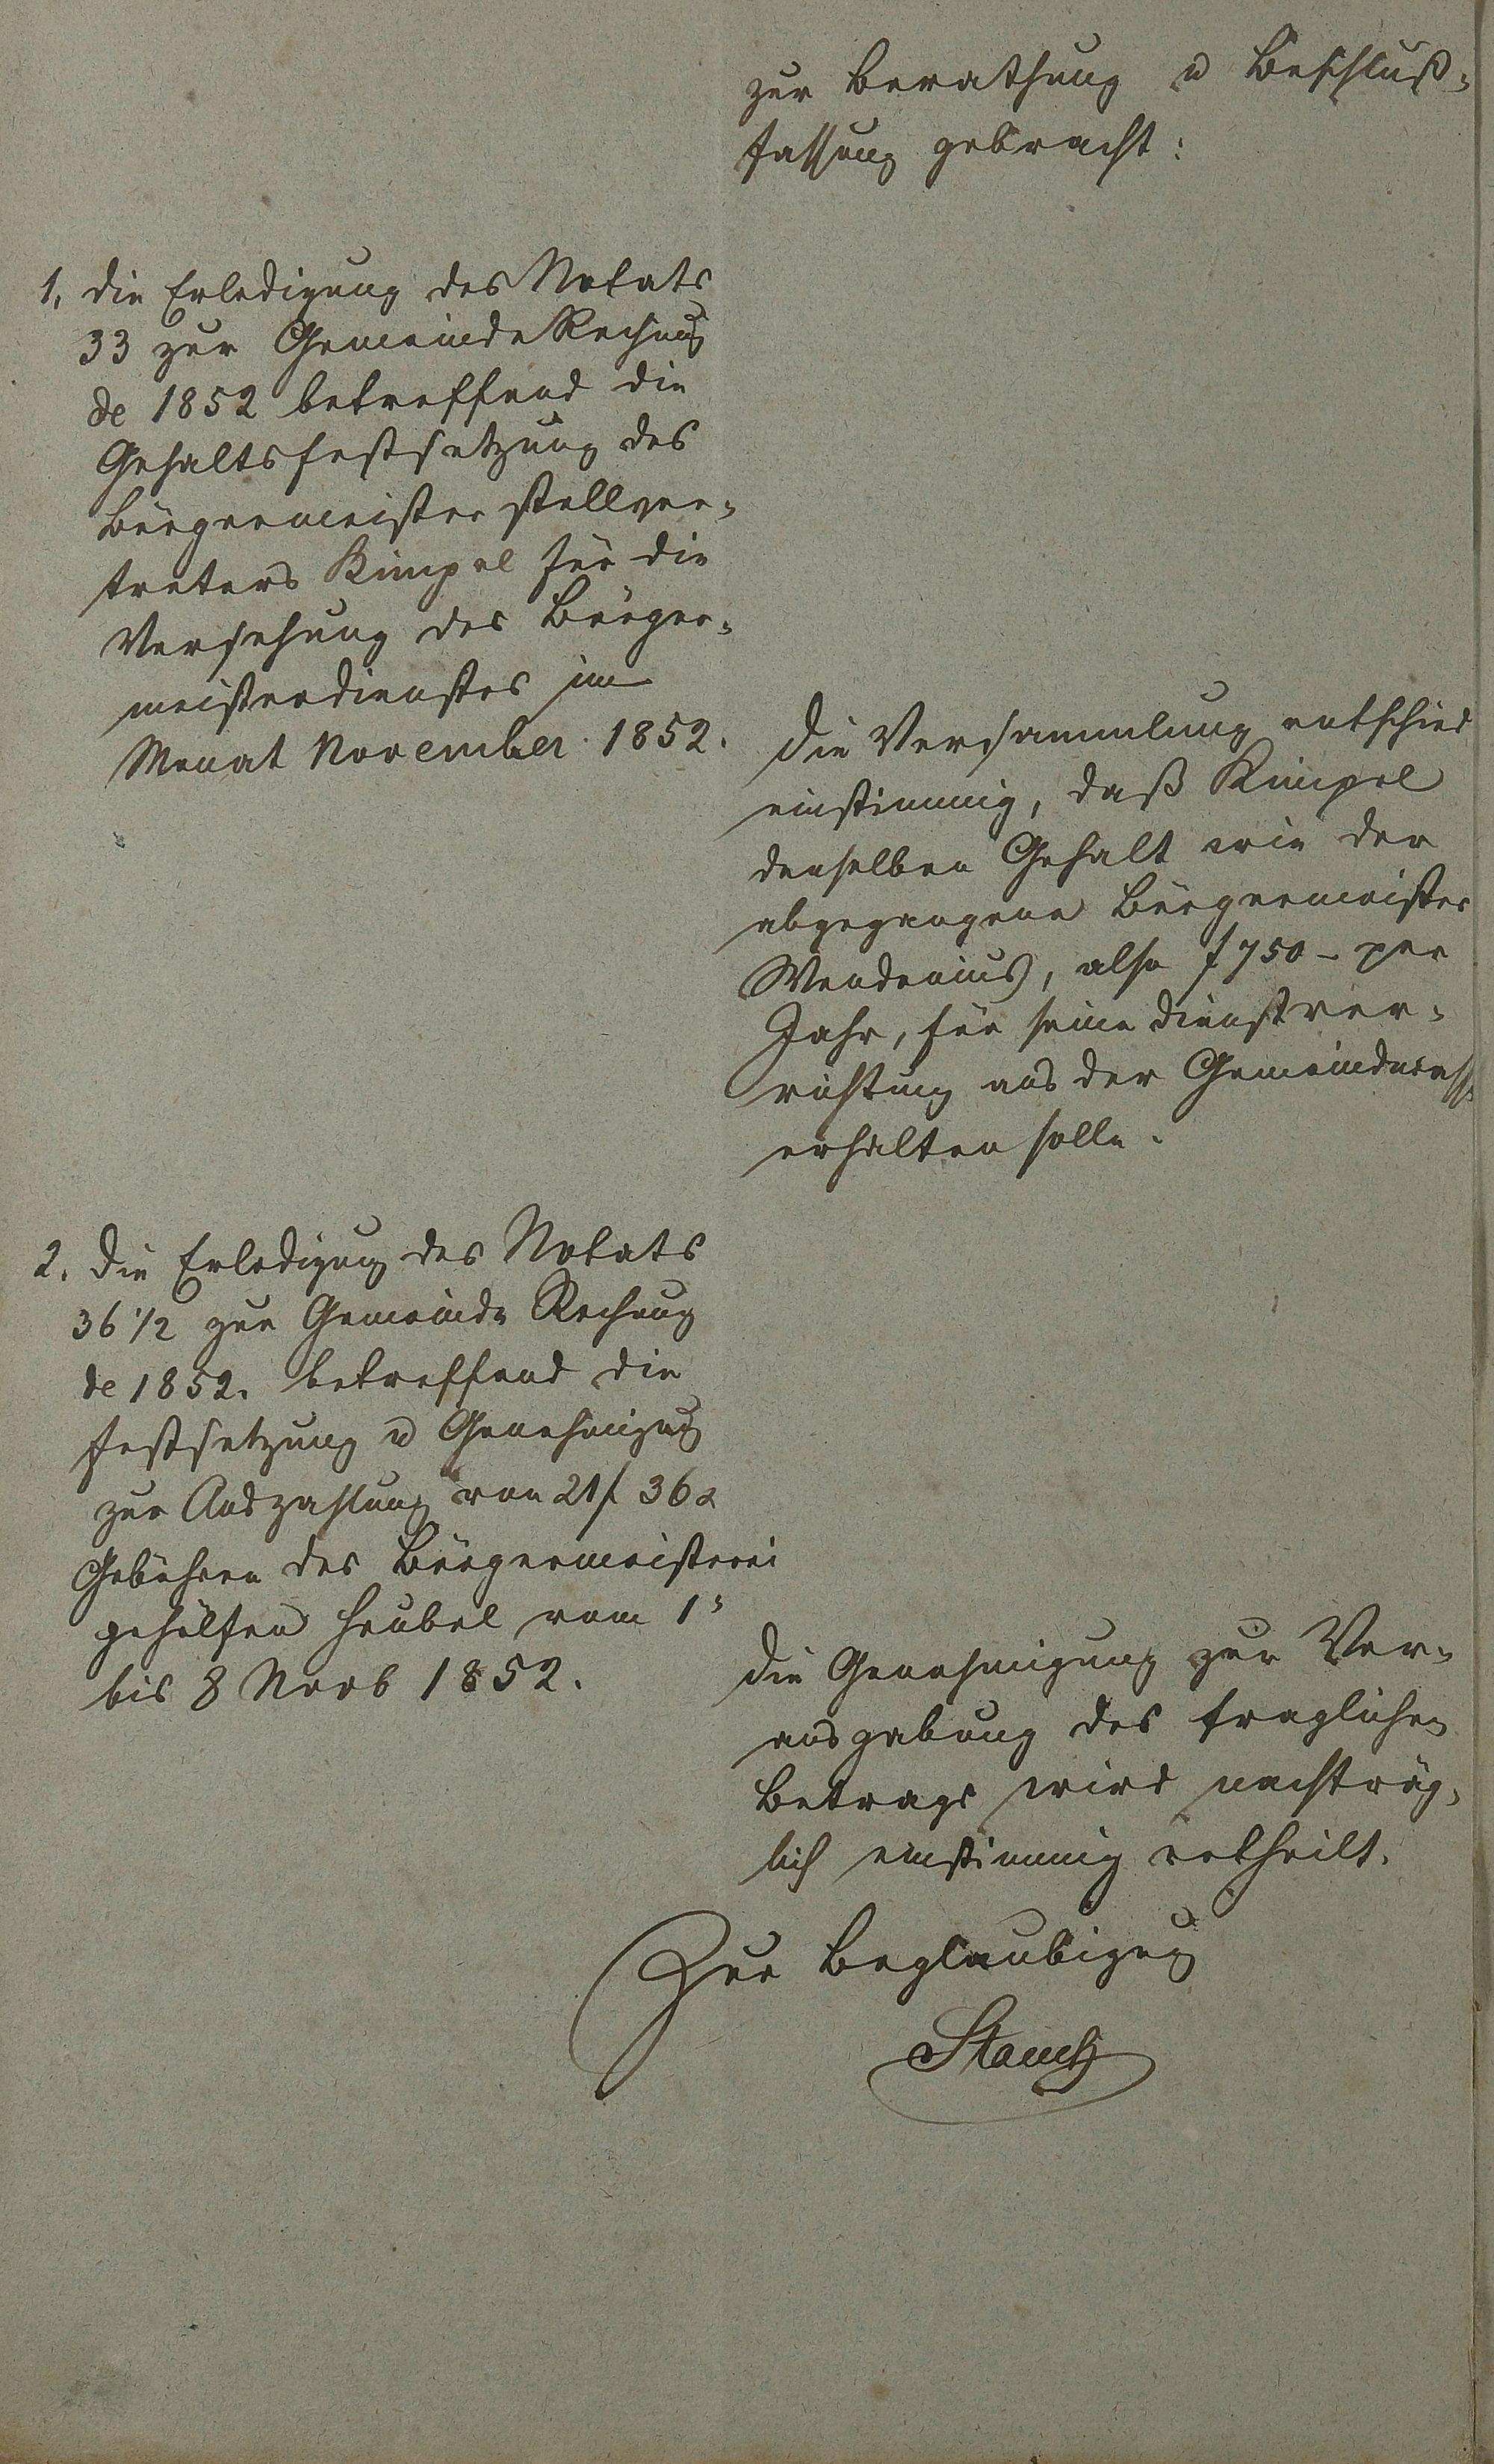 zur Berathung u Beschluß-
fassung gebracht:
1, die Erledigung des Notats
33 zur Gemeinde Rechnung
de 1852 betreffend die
Gehaltsfestsetzung des
Bürgermeister stellver-
treters Kimpel für die
Versehung des Bürger-
meisterdienstes im
Monat November 1852.
Die Versammlung entschied
einstimmig, daß Kimpel
denselben Gehalt wie der
abgegangene Bürgermeister
also f 750 - per
Jahr, für seine Dienstver-
richtung aus der Gemeindecasse
erhalten solle.
2. Die Erledigung des Notats
36 1/2 zur Gemeinde Rechnung
de 1852. betreffend die
Festsetzung u Genehmigung
zur Auszahlung von 21 f 36 x
Gebühren des Bürgermeisterei
gehülfen Heubel vom 1s
bis 8 Novb 1852.
Die Genehmigung zur Ver-
ausgabung des fraglichen
Betrags wird nachträg-
lich einstimmig ertheilt.
Zur Beglaubigung